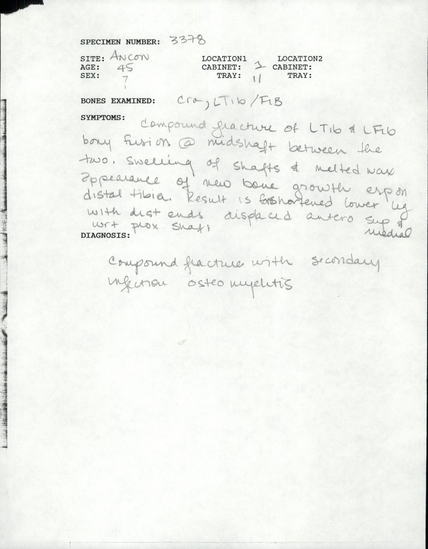 SPECIMEN NUMBER: 3378
SITE: ANCON LOCATION1 LOCATION2
AGE: 45 CABINET: 1 CABINET:
SEX: ? TRAY: 11 TRAY:
BONES EXAMINED: Cra, LTib/FIB
SYMPTOMS: Compound fracture of LTib & LFib
bony fusion @ midshaft between the
two. Swelling of shafts & melted wax
appearance of new bone growth esp on
distal tibia. Result is shortened lower leg
with dist ends displaced antero sup &
wrt prox shaft medial
DIAGNOSIS:
Compound fracture with secondary
infection osteomyelitis